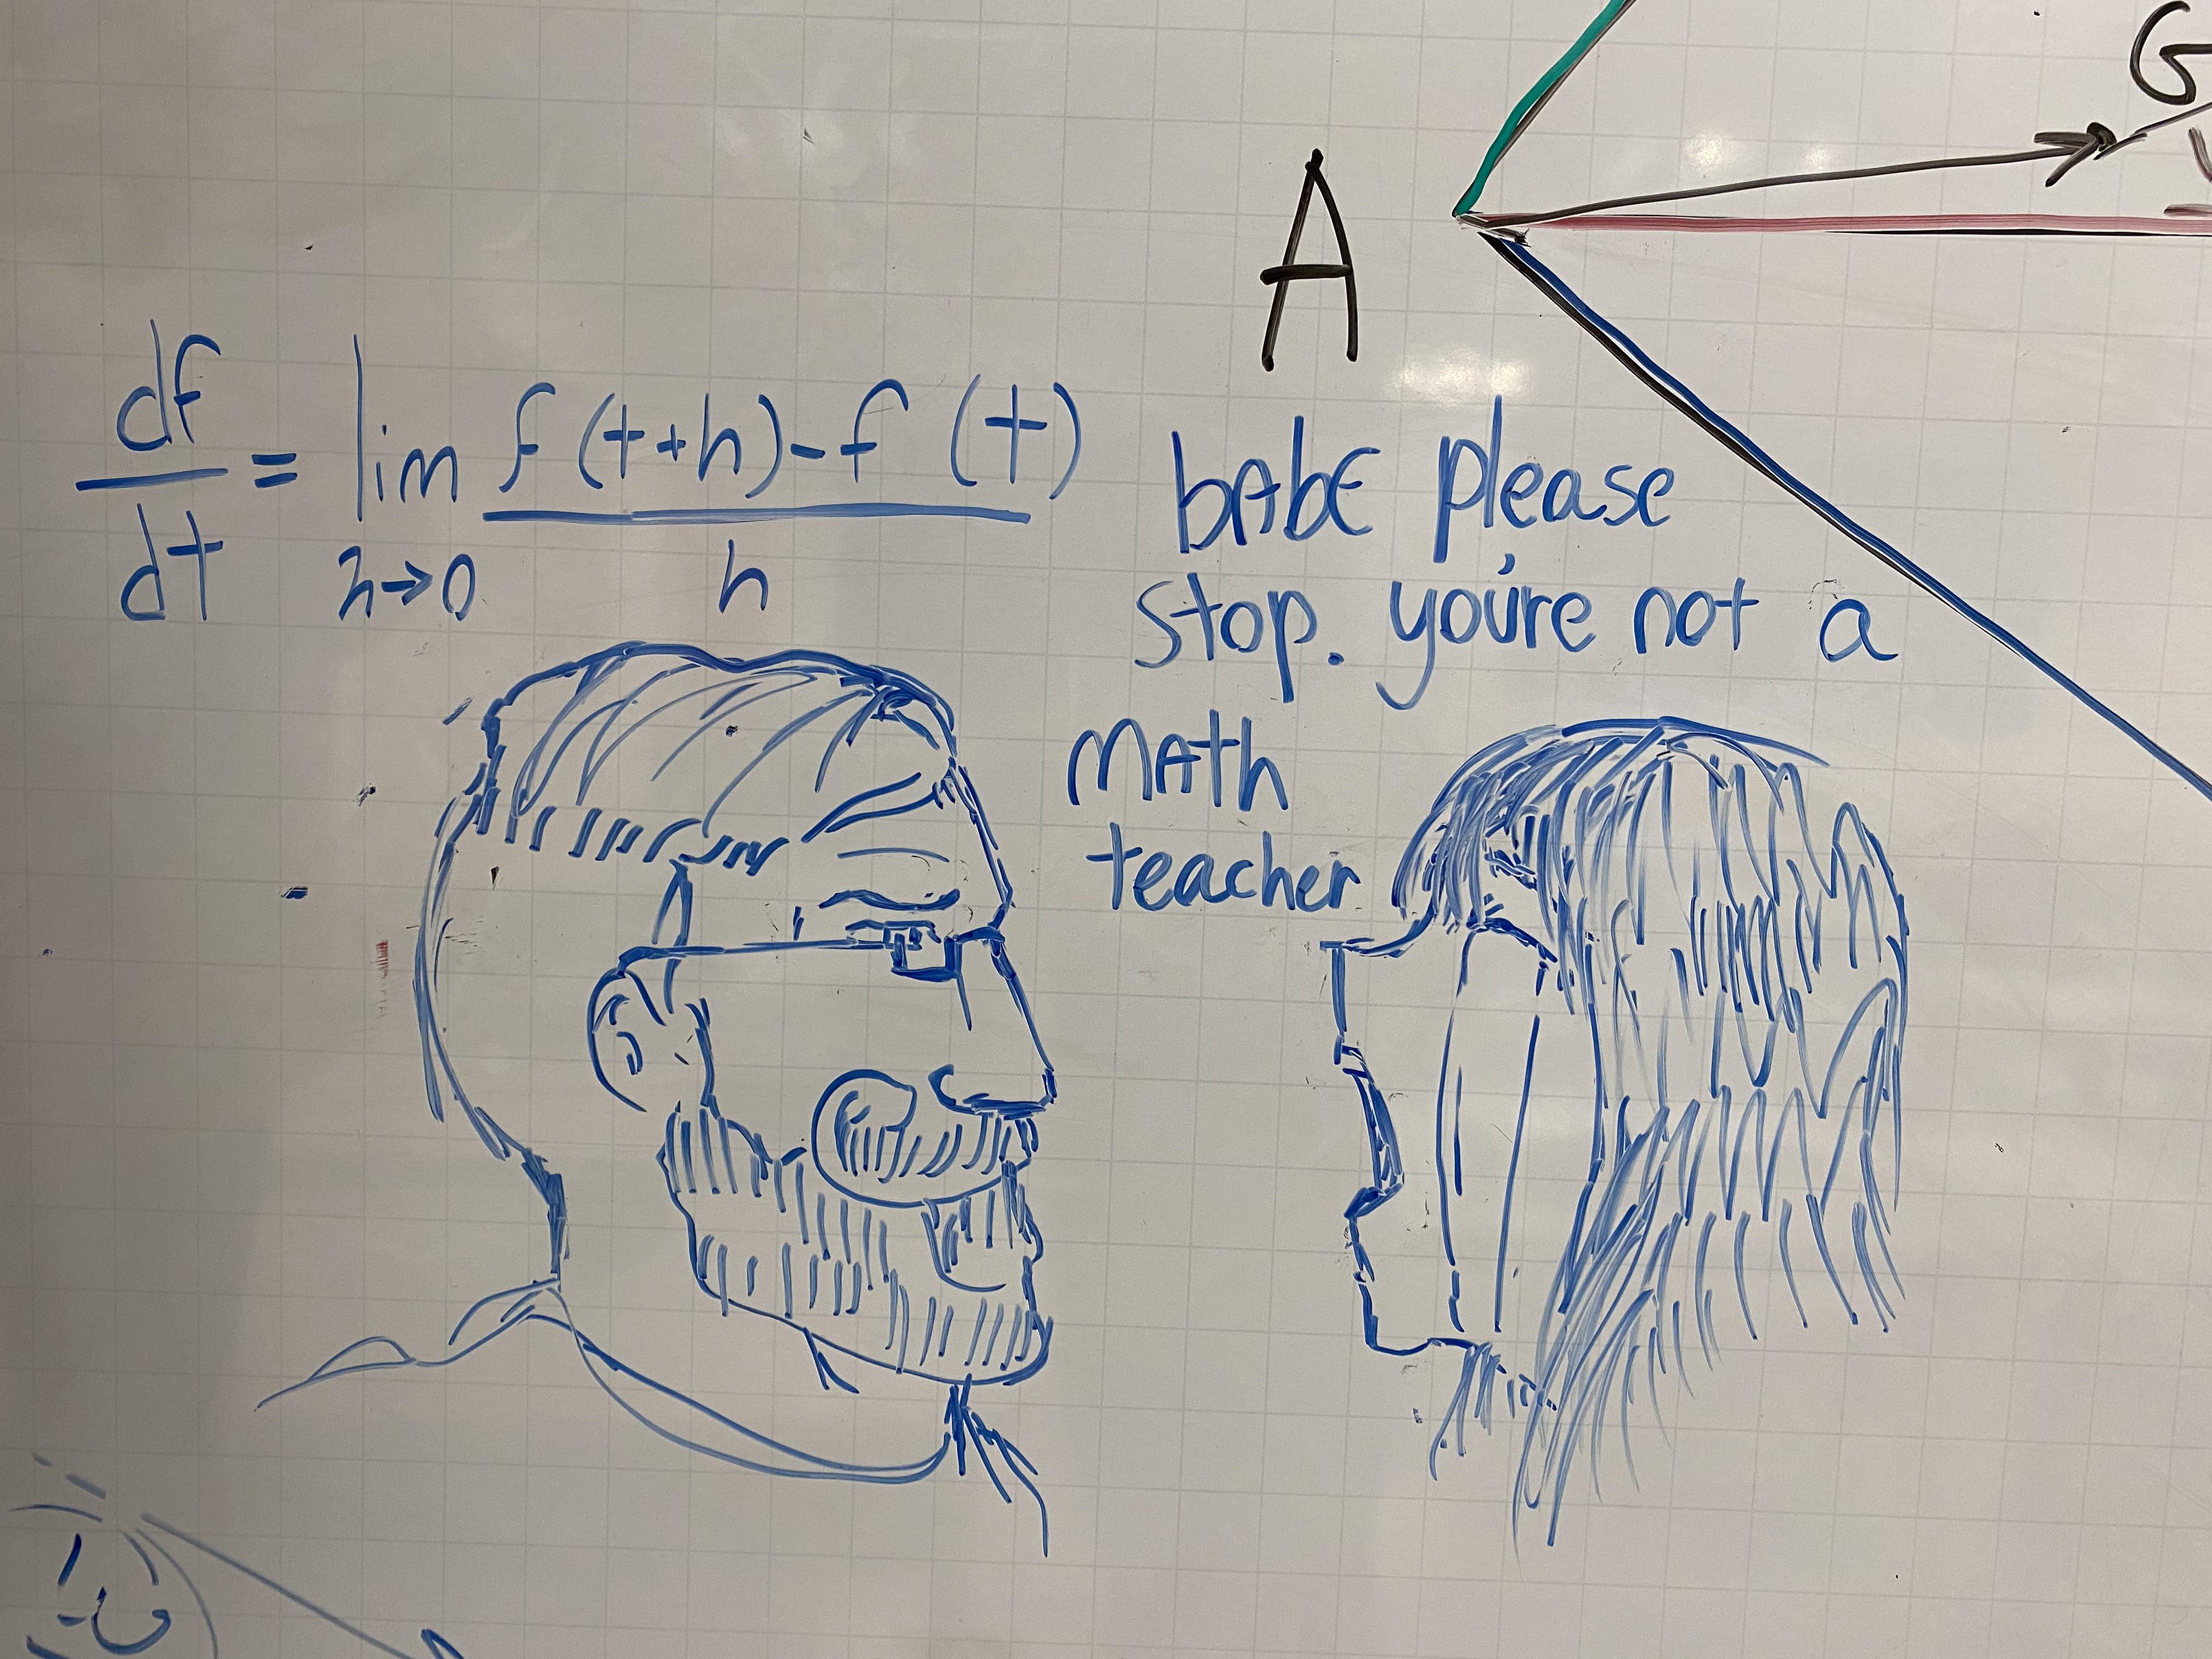 G
A
df/dt = lim h→0 f(t+h)-f(t)/h
bAbE please
stop. you're not a
mAth
teacher